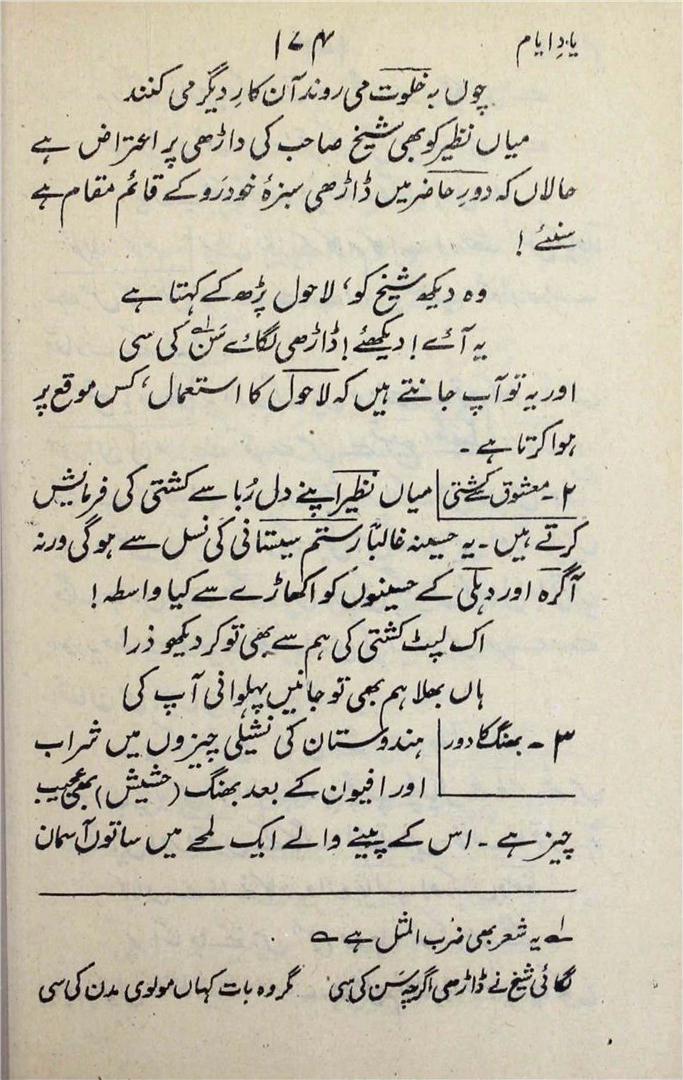 یادِ ایام ۱۷۴
چوں بہ خلوت می روند آن کارِ دیگر می کنند
میاں نظیر کو بھی شیخ صاحب کی داڑھی پر اعتراض ہے
حالاں کہ دورِ حاضر میں ڈاڑھی سبزۂ خودرَو کے قائم مقام ہے
سنئے !
وہ دیکھ شیخ کو، لاحول پڑھ کے کہتا ہے
یہ آئے ! دیکھئے ! ڈاڑھی لگائے سَن کی سی ۱؎
اور یہ تو آپ جانتے ہیں کہ لاحول کا استعمال، کس موقع پر
ہوا کرتا ہے ۔
۲ ۔ معشوق سے کشتی میاں نظیر اپنے دل رُبا سے کشتی کی فرمایش
کرتے ہیں ۔ یہ حسینہ غالباً رستم سیستانی کی نسل سے ہوگی ورنہ
آگرہ اور دہلی کے حسینوں کو اکھاڑے سے کیا واسطہ !
اک لپٹ کشتی کی ہم سے بھی تو کر دیکھو ذرا
ہاں بھلا ہم بھی تو جانیں پہلوانی آپ کی
۳ ۔ بھنگ کا دور ہندوستان کی نشیلی چیزوں میں شراب
اور افیون کے بعد بھنگ (حشیش) بھی عجیب
چیز ہے ۔ اس کے پینے والے ایک لمحے میں ساتوں آسمان
۱؎ یہ شعر بھی ضرب المثل ہے ؎
لگائی شیخ نے ڈاڑھی اگرچہ سَن کی سی مگر وہ بات کہاں مولوی مدن کی سی